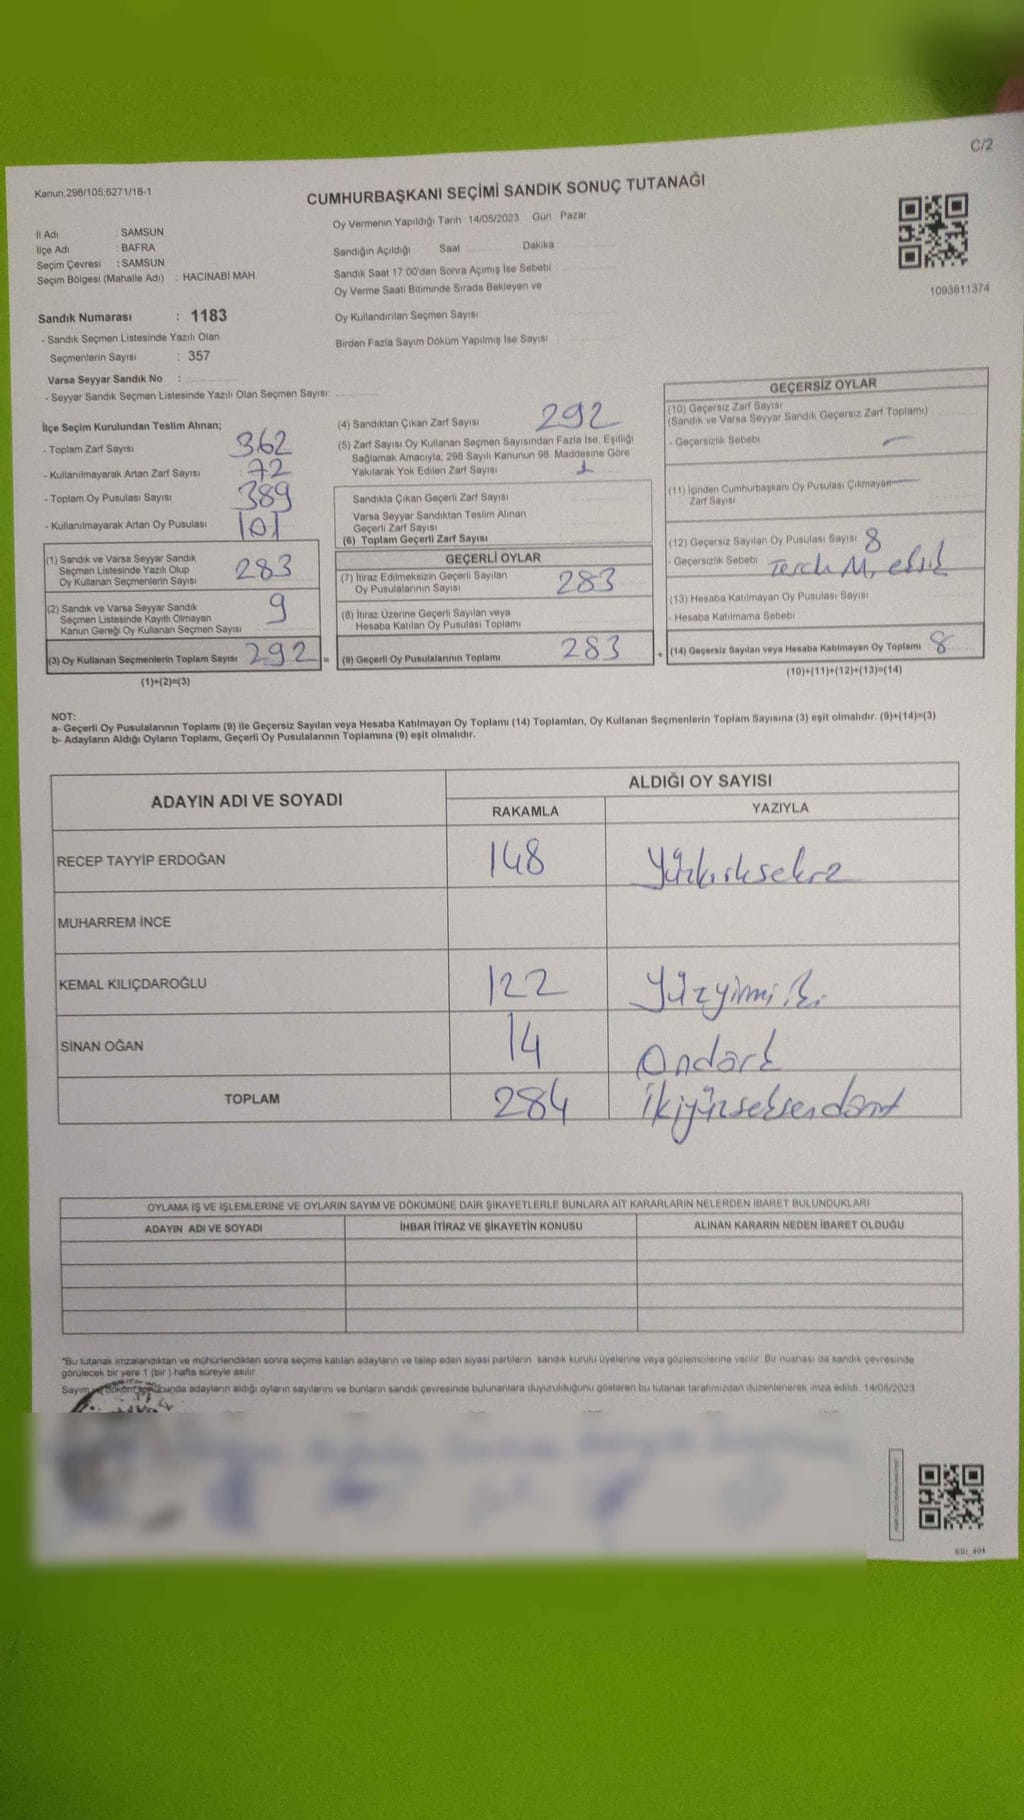 C/2
Kanun.298/105;6271/18-1
CUMHURBAŞKANI SEÇİMİ SANDIK SONUÇ TUTANAĞI
İl Adı : SAMSUN
İlçe Adı : BAFRA
Seçim Çevresi : SAMSUN
Seçim Bölgesi (Mahalle Adı) : HACINABİ MAH
Sandık Numarası : 1183
- Sandık Seçmen Listesinde Yazılı Olan
Seçmenlerin Sayısı : 357
Varsa Seyyar Sandık No :
- Seyyar Sandık Seçmen Listesinde Yazılı Olan Seçmen Sayısı:
Oy Vermenin Yapıldığı Tarih :14/05/2023 Gün : Pazar
Sandığın Açıldığı Saat Dakika
Sandık Saat 17:00'den Sonra Açımış İse Sebebi
Oy Verme Saati Bitiminde Sırada Bekleyen ve
Oy Kullandırılan Seçmen Sayısı
Birden Fazla Sayım Döküm Yapılmış İse Sayısı
1093811374
İlçe Seçim Kurulundan Teslim Alınan;
- Toplam Zarf Sayısı 362
- Kullanılmayarak Artan Zarf Sayısı 72
- Toplam Oy Pusulası Sayısı 389
- Kullanılmayarak Artan Oy Pusulası 101
(1) Sandık ve Varsa Seyyar Sandık
Seçmen Listesinde Yazılı Olup
Oy Kullanan Seçmenlerin Sayısı 283
(2) Sandık ve Varsa Seyyar Sandık
Seçmen Listesinde Kayıtlı Olmayan
Kanun Gereği Oy Kullanan Seçmen Sayısı 9
(3) Oy Kullanan Seçmenlerin Toplam Sayısı 292 =
(1)+(2)=(3)
(4) Sandıktan Çıkan Zarf Sayısı 292
(5) Zarf Sayısı Oy Kullanan Seçmen Sayısından Fazla İse, Eşitliği
Sağlamak Amacıyla; 298 Sayılı Kanunun 98. Maddesine Göre
Yakılarak Yok Edilen Zarf Sayısı
Sandıkta Çıkan Geçerli Zarf Sayısı
Varsa Seyyar Sandıktan Teslim Alınan
Geçerli Zarf Sayısı
(6) Toplam Geçerli Zarf Sayısı
GEÇERLİ OYLAR
(7) İtiraz Edilmeksizin Geçerli Sayılan
Oy Pusulalarının Sayısı 283
(8) İtiraz Üzerine Geçerli Sayılan veya
Hesaba Katılan Oy Pusulası Toplamı
(9) Geçerli Oy Pusulalarının Toplamı 283 +
GEÇERSİZ OYLAR
(10) Geçersiz Zarf Sayısı
(Sandık ve Varsa Seyyar Sandık Geçersiz Zarf Toplamı)
- Geçersizlik Sebebi
(11) İçinden Cumhurbaşkanı Oy Pusulası Çıkmayan
Zarf Sayısı
(12) Geçersiz Sayılan Oy Pusulası Sayısı 8
- Geçersizlik Sebebi
(13) Hesaba Katılmayan Oy Pusulası Sayısı
- Hesaba Katılmama Sebebi
(14) Geçersiz Sayılan veya Hesaba Katılmayan Oy Toplamı 8
(10)+(11)+(12)+(13)=(14)
NOT:
a- Geçerli Oy Pusulalarının Toplamı (9) ile Geçersiz Sayılan veya Hesaba Katılmayan Oy Toplamı (14) Toplamları, Oy Kullanan Seçmenlerin Toplam Sayısına (3) eşit olmalıdır. (9)+(14)=(3)
b- Adayların Aldığı Oyların Toplamı, Geçerli Oy Pusulalarının Toplamına (9) eşit olmalıdır.
ADAYIN ADI VE SOYADI
ALDIĞI OY SAYISI
RAKAMLA YAZIYLA
RECEP TAYYİP ERDOĞAN 148 Yüzkırksekiz
MUHARREM İNCE
KEMAL KILIÇDAROĞLU 122 Yüzyimi iki
SİNAN OĞAN 14 Ondört
TOPLAM 284 İkiyüzseksendört
OYLAMA İŞ VE İŞLEMLERİNE VE OYLARIN SAYIM VE DÖKÜMÜNE DAİR ŞİKAYETLERLE BUNLARA AİT KARARLARIN NELERDEN İBARET BULUNDUKLARI
ADAYIN ADI VE SOYADI İHBAR İTİRAZ VE ŞİKAYETİN KONUSU ALINAN KARARIN NEDEN İBARET OLDUĞU
*Bu tutanak imzalandıktan ve mühürlendikten sonra seçime katılan adayların ve talep eden siyasi partilerin sandık kurulu üyelerine veya gözlemcilerine verilir. Bir nüshası da sandık çevresinde
görülecek bir yere 1 (bir) hafta süreyle asılır.
Sayım ve döküm sonucunda adayların aldığı oyların sayılarını ve bunların sandık çevresinde bulunanlara duyurulduğunu gösteren bu tutanak tarafımızdan düzenlenerek imza edildi. 14/05/2023